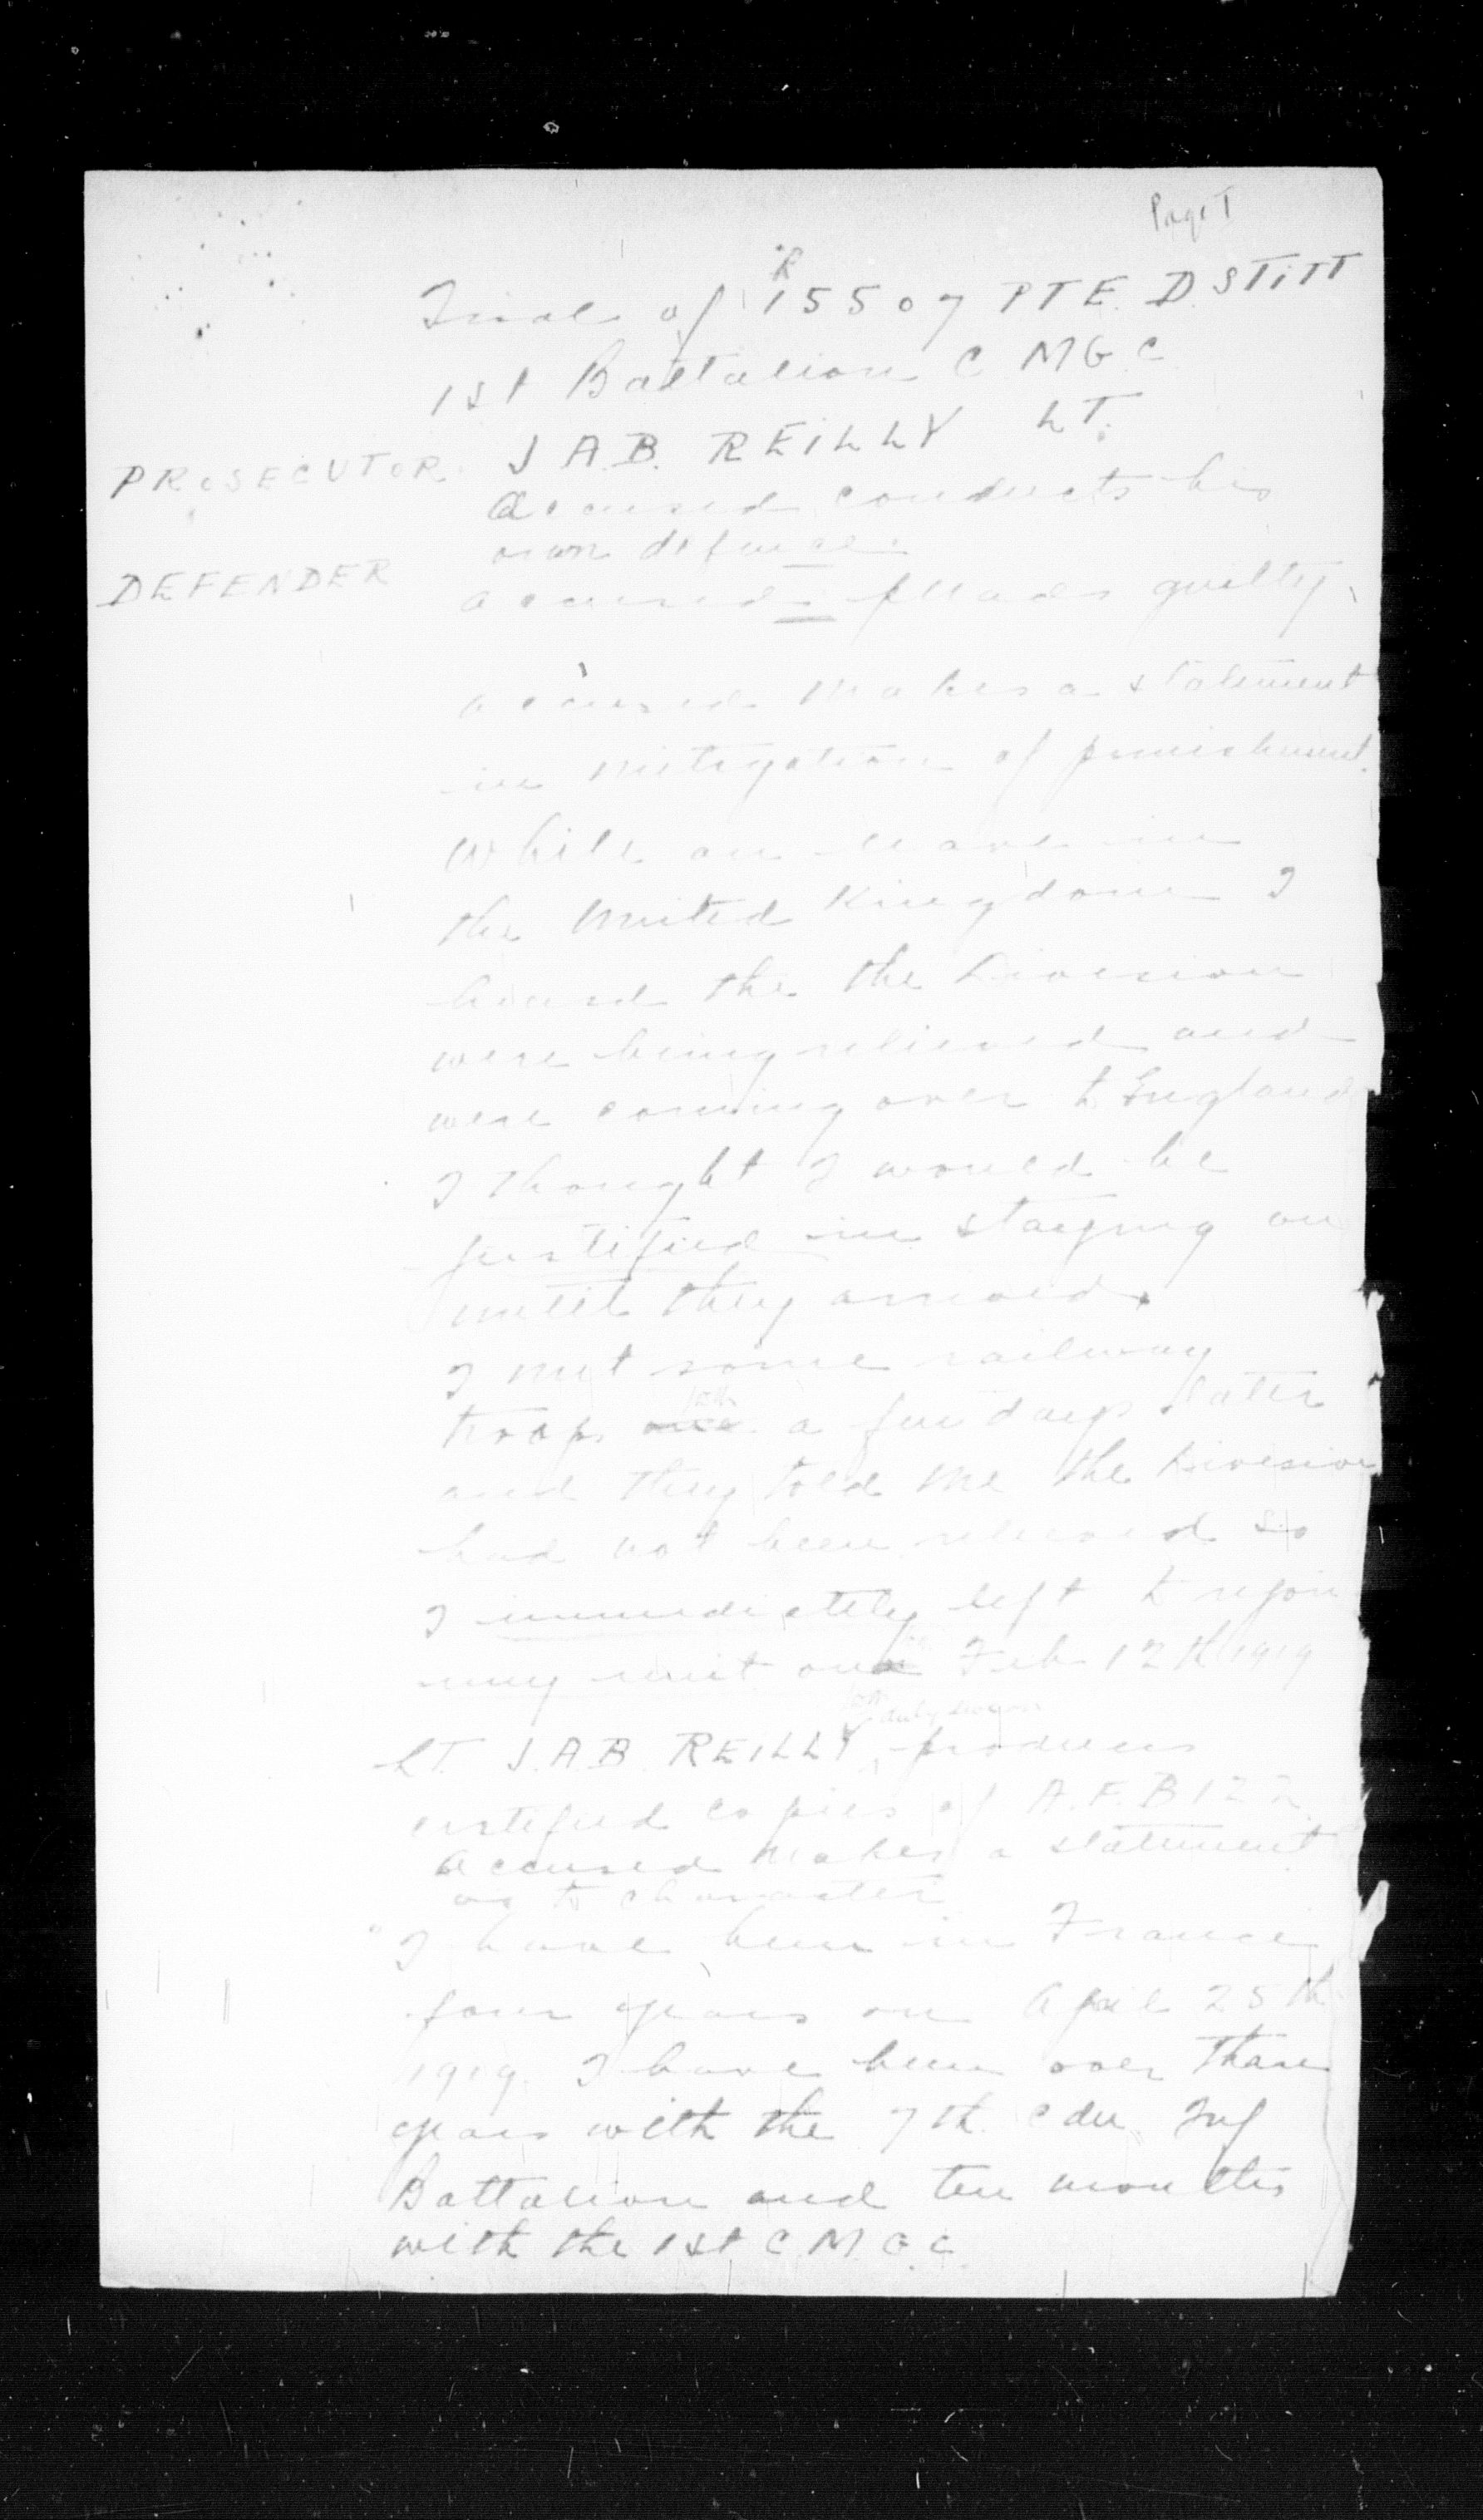 Page I
Trial of 15507 PTE. D. STITT
1st Battalion C MGC
PROSECUTOR. J A.B. REILLY LT.
DEFENDER
Accused conducts his
own defence.
accused pleads guilty.
accused makes a statement
in mitigation of punishment.
While on leave in
the United Kingdom I
heard the the Division
were being relieved and
were coming over to England
I thought I would be
justified in staying on
until they arrived.
I met some railway
troops a few days later
and they told me the Division
had not been relieved so
I immediately left to rejoin
my unit on Feb 12th 1919
duly sworn
LT. J.A.B. REILLY produces
certified copies of A.F.B 122.
Accused makes a statement
as to character
"I have been in France
four years on April 25th
1919. I have been over three
years with the 7th Cdn Inf
Battalion and ten months
with the 1st C.M.G.C.